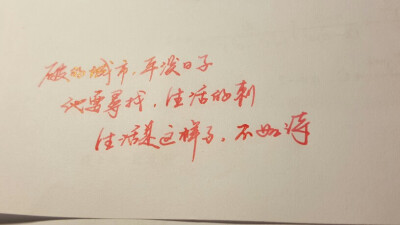 破的城市，平淡日子
他要寻找，生活的刺
生活是这样子，不如诗